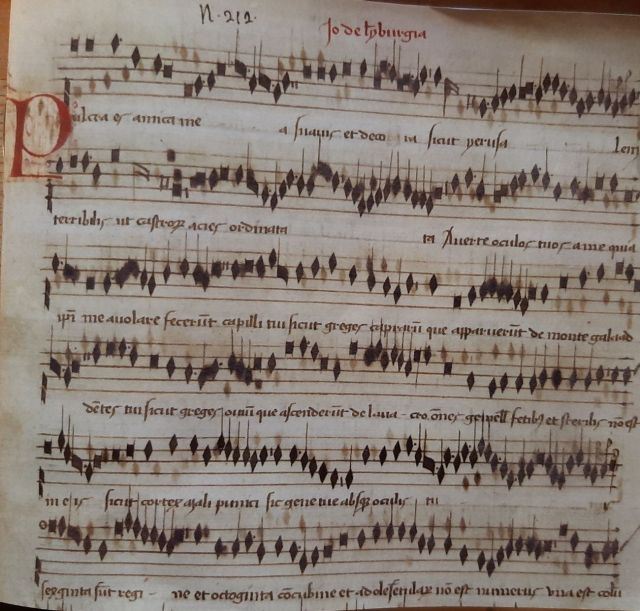 N. 212.
Jo de lymburgia
Pulcra es amica mea suavis et decora sicut Jerusalem
terribilis ut castrorum acies ordinata ta Averte oculos tuos a me quia
ipsi me avolare fecerunt capilli tui sicut greges caprarum que apparuerunt de monte galaad
dentes tui sicut greges ovium que ascenderunt de lavacro omnes gemell fetibus et sterilis non est
in eis sicut cortex mali punici sic gene tue absque oculis tu
sexaginta sunt regi - ne et octoginta concubine et adolescentular non est numerus una est colu